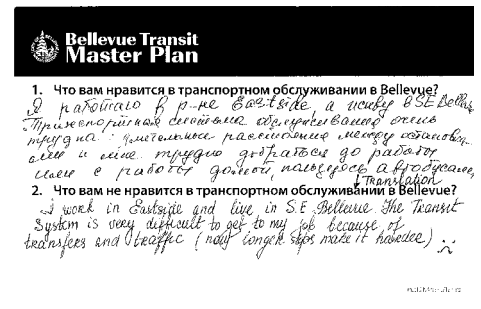 Bellevue Transit
Master Plan
1. Что вам нравится в транспортном обслуживании в Bellevue?
Я работаю в р-не Eastside, а живу в SE Bellev
Транспортная система обслуживания очень
трудна: расстояние между останов
ками и мне трудно добраться до работы
или с работы домой, пользуюсь автобусами,
↓ Translation
2. Что вам не нравится в транспортном обслуживании в Bellevue?
I work in Eastside and live in S.E. Bellevue. The Transit
System is very difficult to get to my job because of
transfers and traffic (now longer stops make it harder)